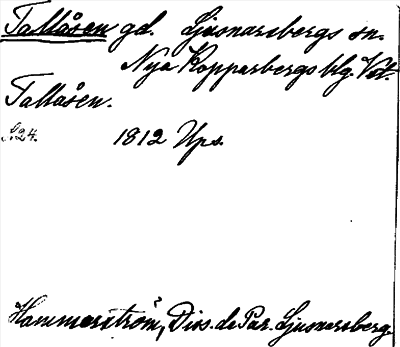 Tallåsen gd. Ljusnarsbergs sn.
Nya Kopparbergs blg. Vst.
Tallåsen.
S. 24. 1812 Ups.
Hammarström, Diss. de Par. Ljusnarsberg.